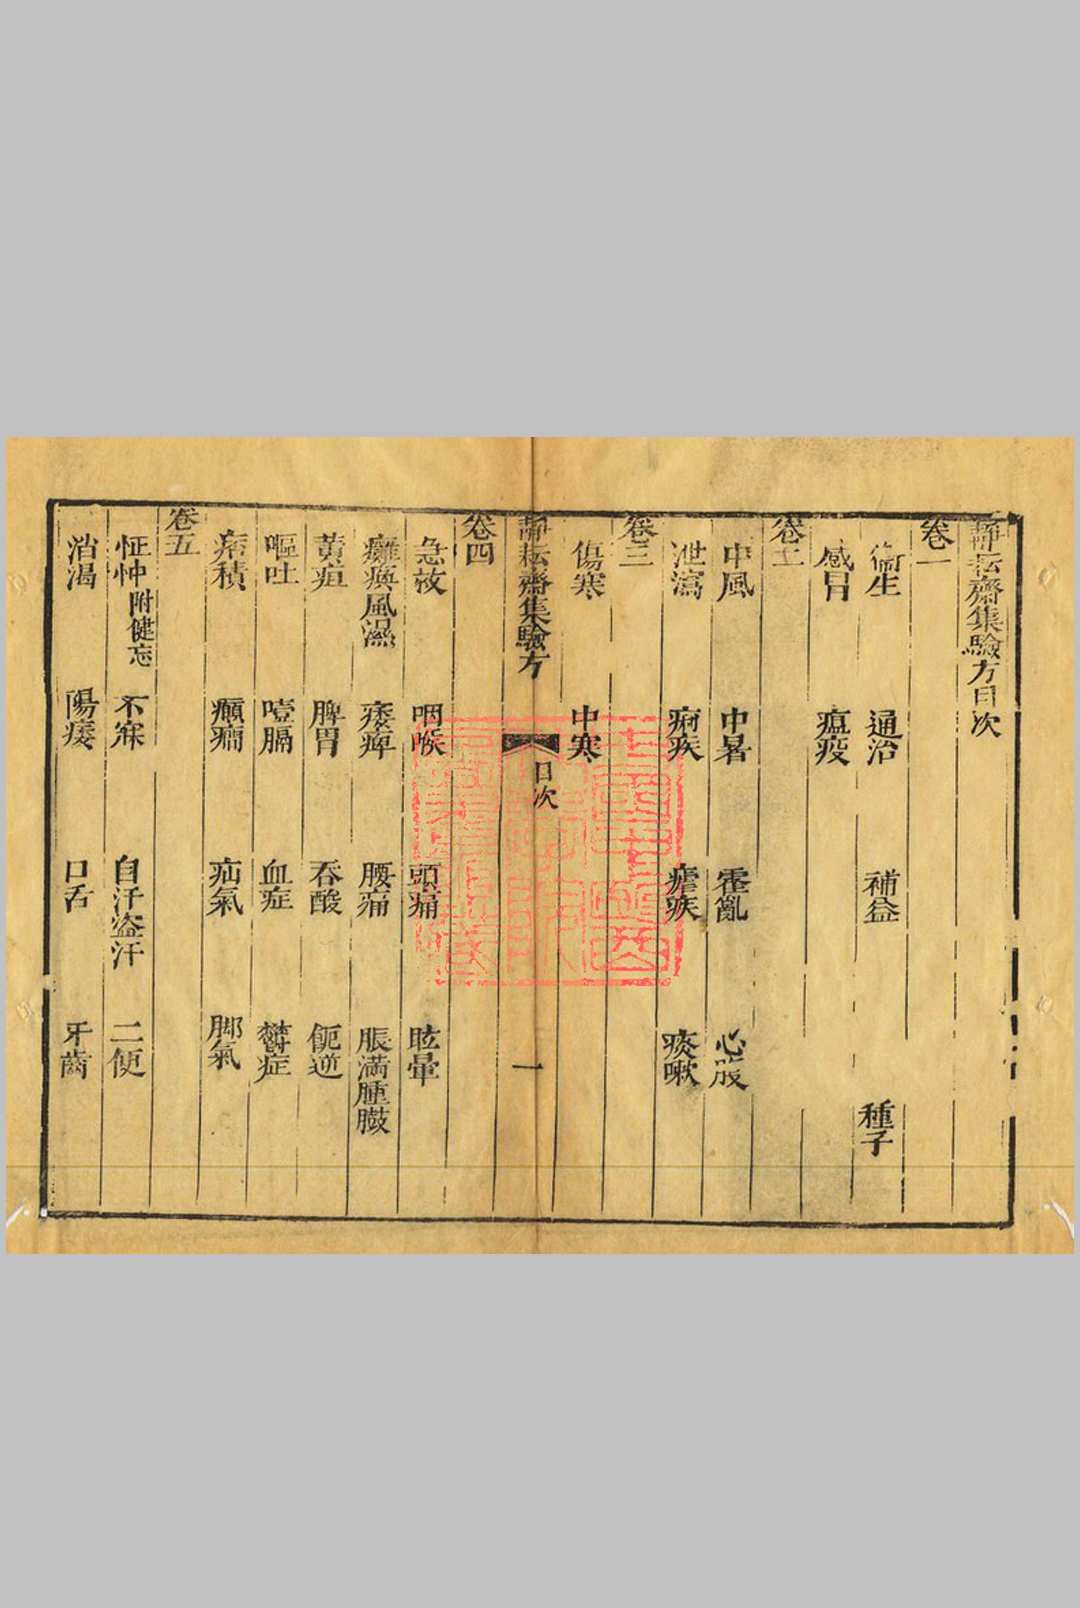 靜耘齋集驗方目次
卷一
衞生 通治 補益 種子
感冒 瘟疫
卷二
中風 中暑 霍亂 心腹
泄瀉 痢疾 瘧疾 痰嗽
卷三
傷寒 中寒
靜耘齋集驗方 目次 一
卷四
急救 咽喉 頭痛 眩暈
癱瘓風濕 痿痺 腰痛 脹滿腫臌
黃疸 脾胃 吞酸 呃逆
嘔吐 噎膈 血症 鬱症
痞積 癲癇 疝氣 脚氣
卷五
怔忡附健忘 不寐 自汗盜汗 二便
消渴 陽痿 口舌 牙齒